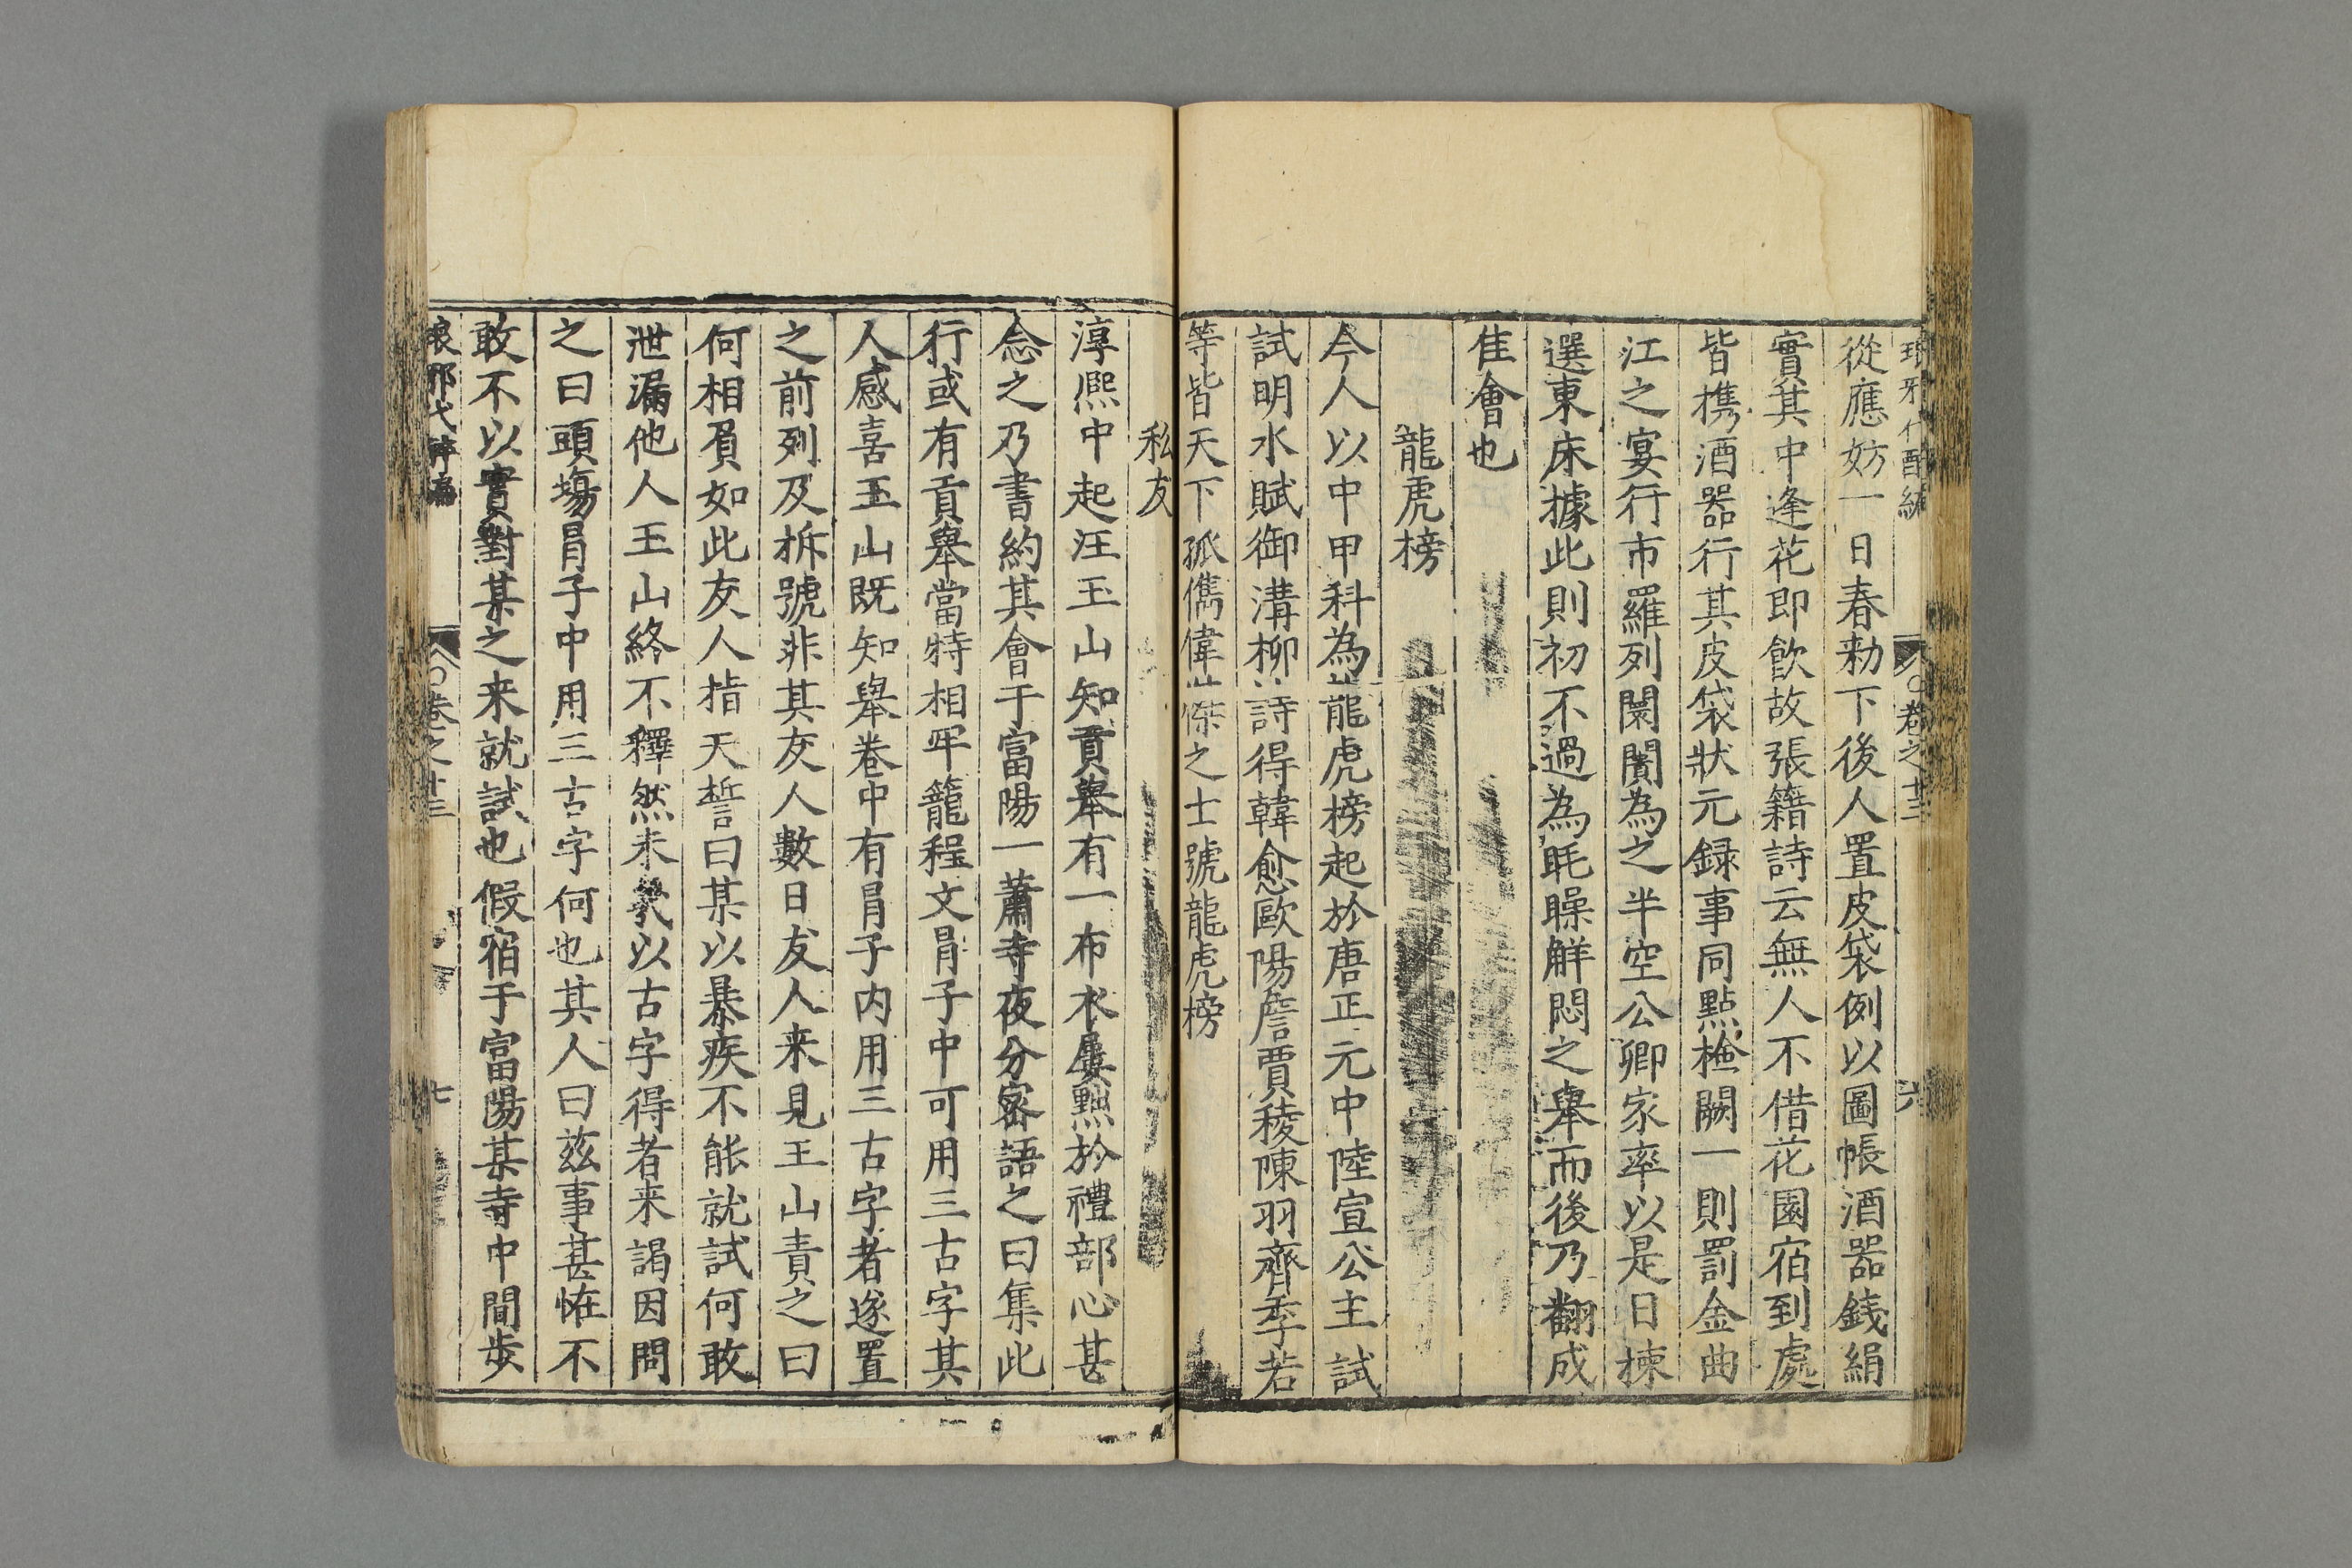 卷之十三 六
從應妨一日春勑下後人置皮袋例以圖帳酒器錢絹
實其中逢花即飲故張籍詩云無人不借花園宿到處
皆携酒器行其皮袋狀元録事同點檢闕一則罰金曲
江之宴行市羅列闤闠為之半空公卿家率以是日揀
選東床據此則初不過為眊矂觧悶之舉而後乃翻成
佳會也
龍虎榜
今人以中甲科為龍虎榜起於唐正元中陸宣公主試
試明水賦御溝柳詩得韓愈歐陽詹賈稜陳羽齊季若
等皆天下孤儁偉傑之士號龍虎榜
私友
淳熈中起汪玉山知貢舉有一布衣屢黜於禮部心甚
念之乃書約其會于富陽一蕭寺夜分密語之曰集此
行或有貢舉當特相牢籠程文冐子中可用三古字其
人感喜玉山既知舉卷中有冐子内用三古字者遂置
之前列及拆號非其友人數日友人来見玉山責之曰
何相負如此友人指天誓曰某以暴疾不能就試何敢
泄漏他人玉山終不釋然未幾以古字得者来謁因問
之曰頭塲冐子中用三古字何也其人曰茲事甚恠不
敢不以實對某之来就試也假宿于富陽某寺中間歩
琅邪代醉編 卷之十三 七